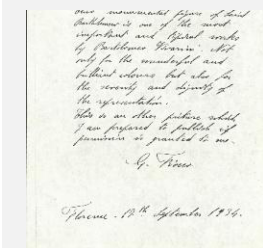 our monumental figure of Saint
Bartholomew is one of the most
important and typical works
by Bartolomeo Vivarini. Not
only for the wonderful and
brilliant colours but also for
the severity and dignity of
the representation.
This is an other picture which
I am prepared to publish if
permission is granted to me.
G. Fiocco
Florence - 12th September 1934.